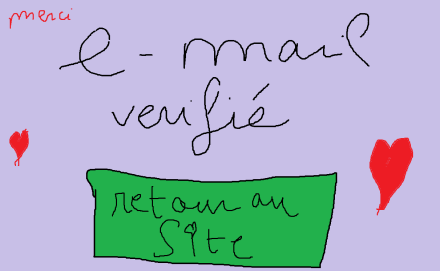 merci
e-mail
verifié
retour au
site